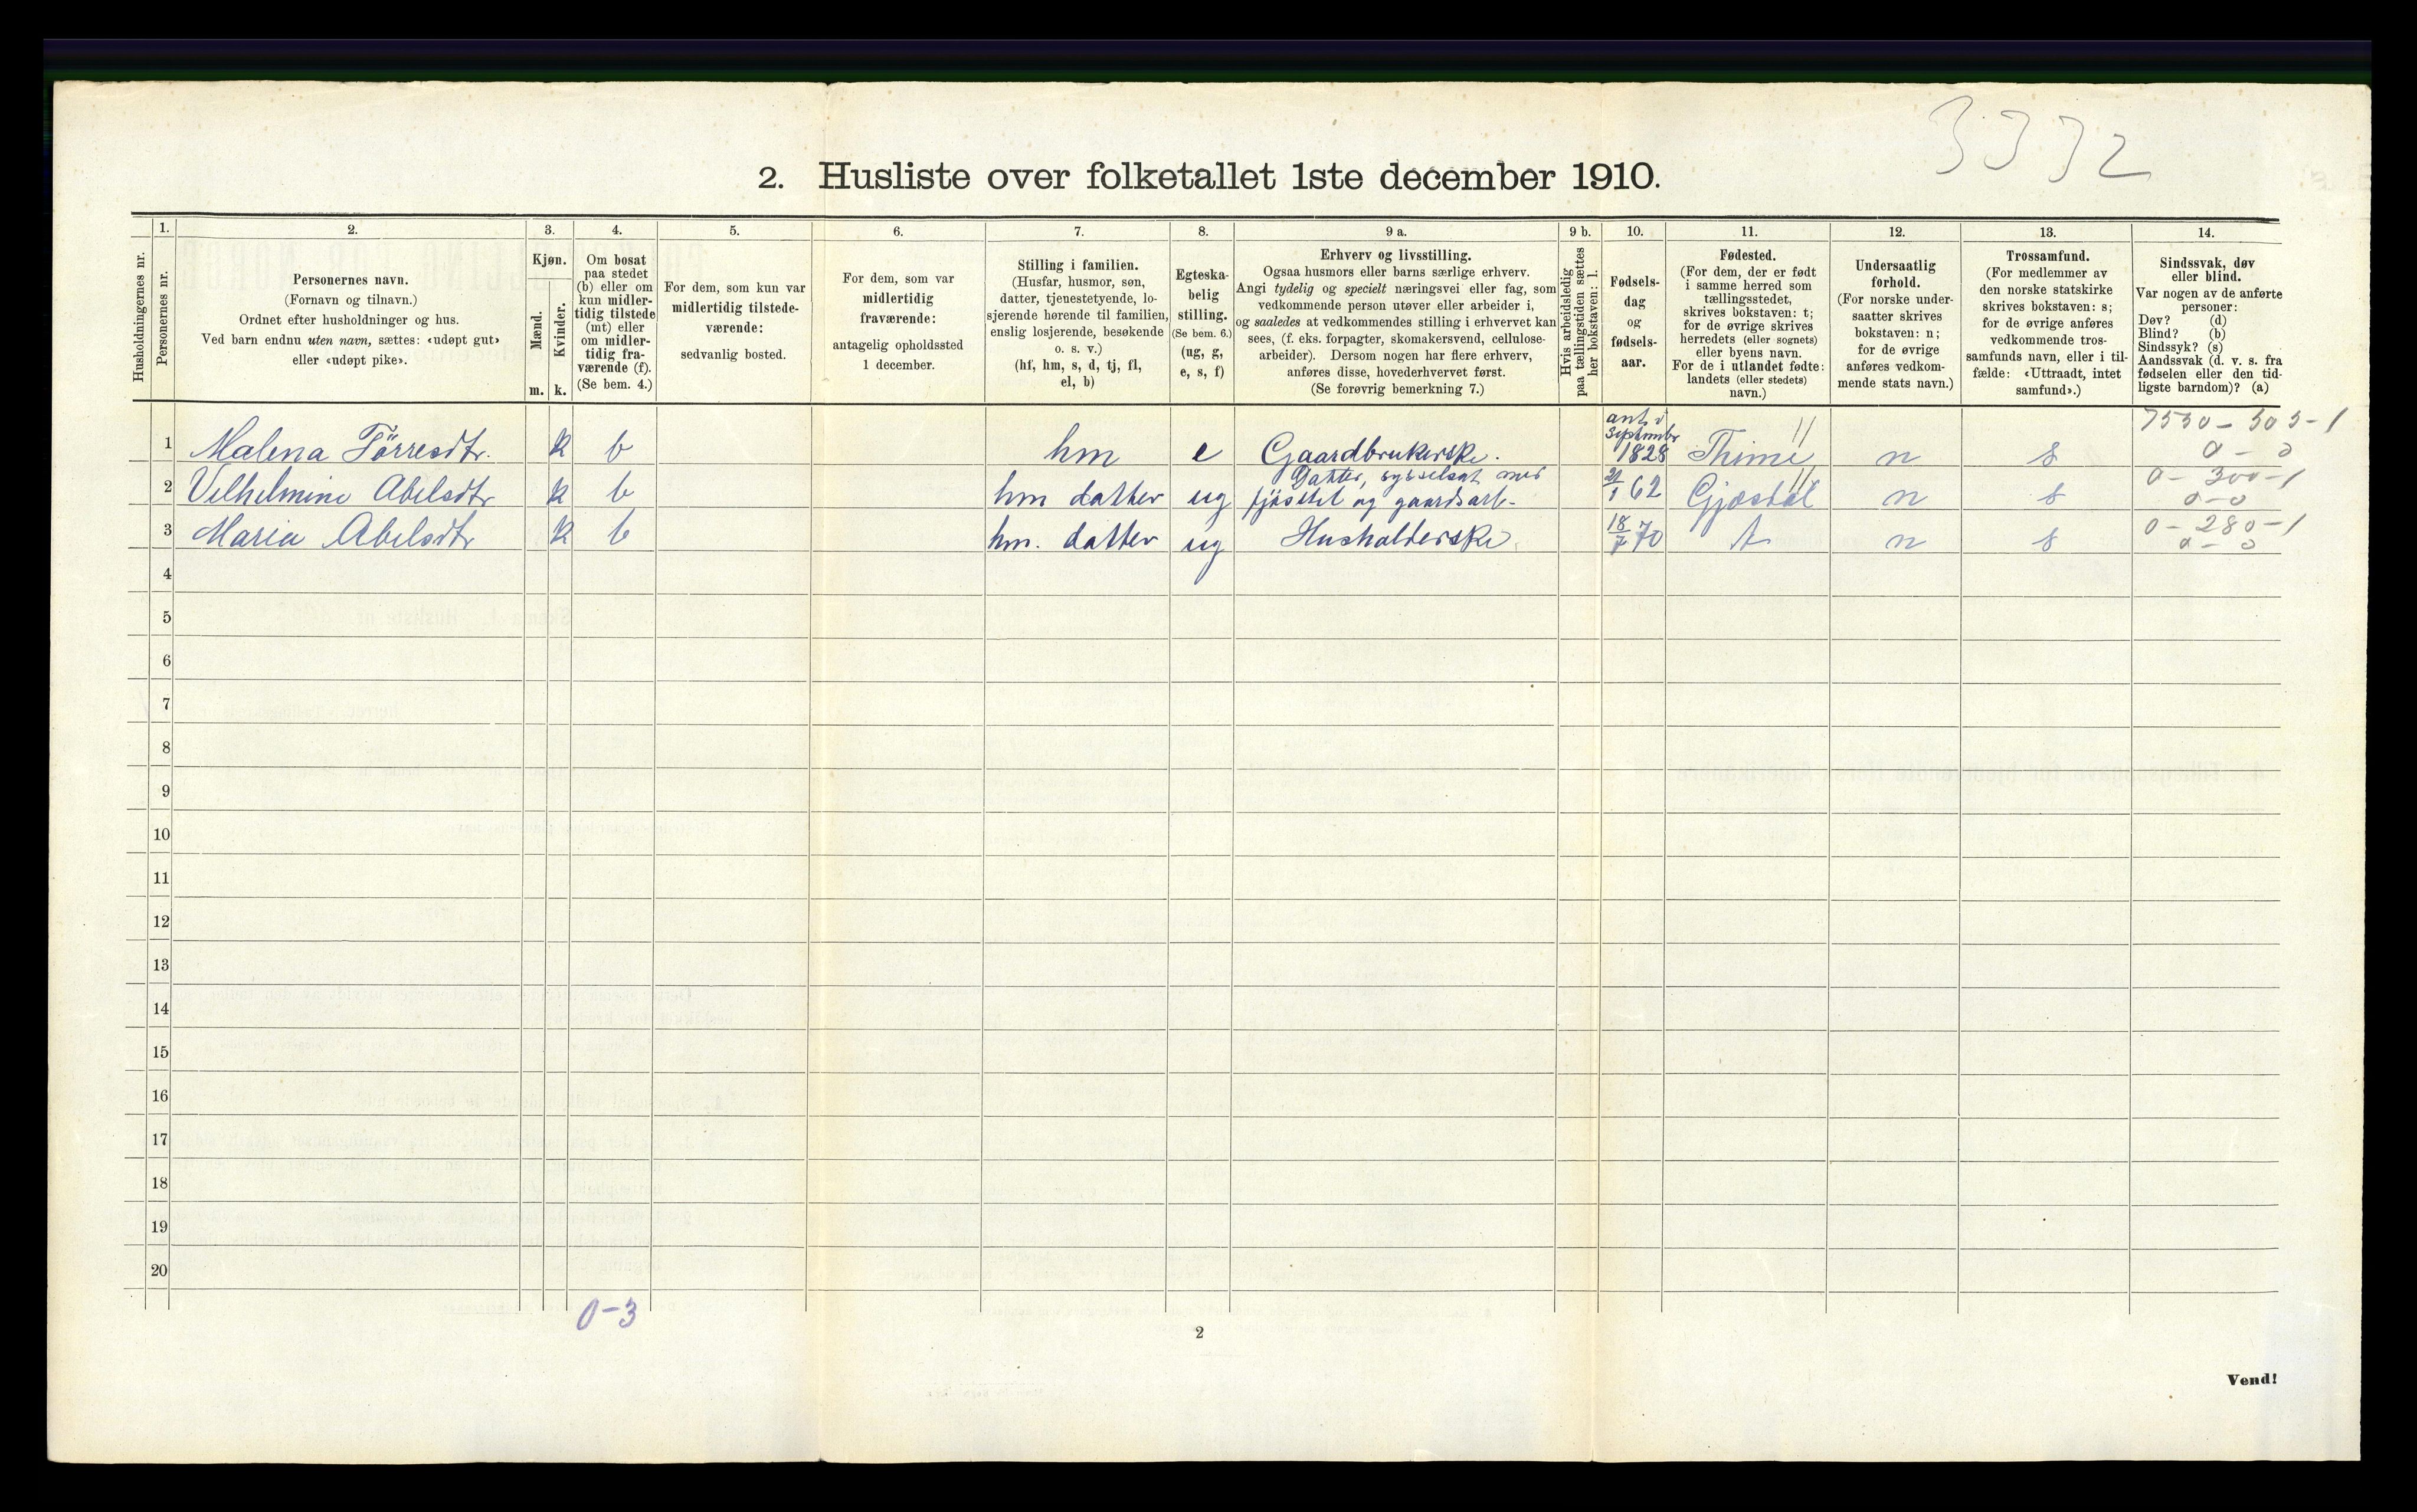 3332
2. Husliste over folketallet 1ste december 1910.
Husholdningernes nr.
1. Personernes nr.
2.
Personernes navn.
(Fornavn og tilnavn.)
Ordnet efter husholdninger og hus.
Ved barn endnu uten navn, sættes: «udøpt gut»
eller «udøpt pike».
3.
Kjøn.
Mænd. Kvinder.
m. k.
4.
Om bosat
paa stedet
(b) eller om
kun midler-
tidig tilstede
(mt) eller
om midler-
tidig fra-
værende (f).
(Se bem. 4.)
5.
For dem, som kun var
midlertidig tilstede-
værende:
sedvanlig bosted.
6.
For dem, som var
midlertidig
fraværende:
antagelig opholdssted
1 december.
7.
Stilling i familien.
(Husfar, husmor, søn,
datter, tjenestetyende, lo-
sjerende hørende til familien,
enslig losjerende, besøkende
o. s. v.)
(hf, hm, s, d, tj, fl,
el, b)
8.
Egteska-
belig
stilling.
(Se bem. 6.)
(ug, g,
e, s, f)
9 a.
Erhverv og livsstilling.
Ogsaa husmors eller barns særlige erhverv.
Angi tydelig og specielt næringsvei eller fag, som
vedkommende person utøver eller arbeider i,
og saaledes at vedkommendes stilling i erhvervet kan
sees, (f. eks. forpagter, skomakersvend, cellulose-
arbeider). Dersom nogen har flere erhverv,
anføres disse, hovederhvervet først.
(Se forøvrig bemerkning 7.)
9 b.
Hvis arbeidsledig
paa tællingstiden sættes
her bokstaven: l.
10.
Fødsels-
dag
og
fødsels-
aar.
11.
Fødested.
(For dem, der er født
i samme herred som
tællingsstedet,
skrives bokstaven: t;
for de øvrige skrives
herredets (eller sognets)
eller byens navn.
For de i utlandet fødte:
landets (eller stedets)
navn.)
12.
Undersaatlig
forhold.
(For norske under-
saatter skrives
bokstaven: n;
for de øvrige
anføres vedkom-
mende stats navn.)
13.
Trossamfund.
(For medlemmer av
den norske statskirke
skrives bokstaven: s;
for de øvrige anføres
vedkommende tros-
samfunds navn, eller i til-
fælde: «Uttraadt, intet
samfund».)
14.
Sindssvak, døv
eller blind.
Var nogen av de anførte
personer:
Døv? (d)
Blind? (b)
Sindssyk? (s)
Aandssvak (d. v. s. fra
fødselen eller den tid-
ligste barndom)? (a)
1 Malena Törresdtr. k b hm e Gaardbrukerske. septembr 1828 Thime n s 7530-505-1
0-0
2 Vilhelmine Abelsdtr k b hm datter ug Datter, sysselsat med
fjøsstel og gaardsarb- 62 Gjæstal n s 0-300-1
0-0
3 Maria Abelsdtr k b hm. datter ug Husholderske 18/7 70 t n s 0-280-1
0-0
4
5
6
7
8
9
10
11
12
13
14
15
16
17
18
19
20
0-3
2
Vend!